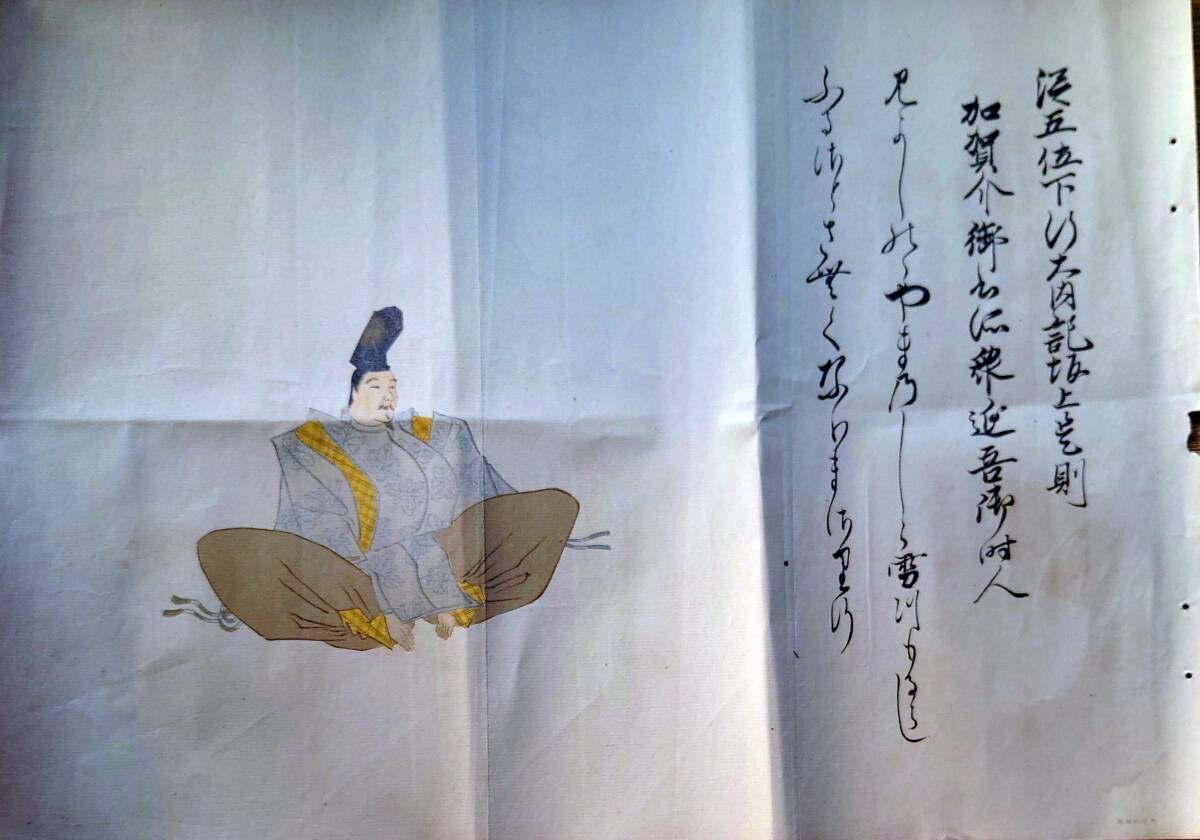 従五位下行大内記坂上是則
加賀介御書所衆延喜御時人
見よしのゝやま乃しらゝ雪川もるらし
ふるさとさむくなりまさる